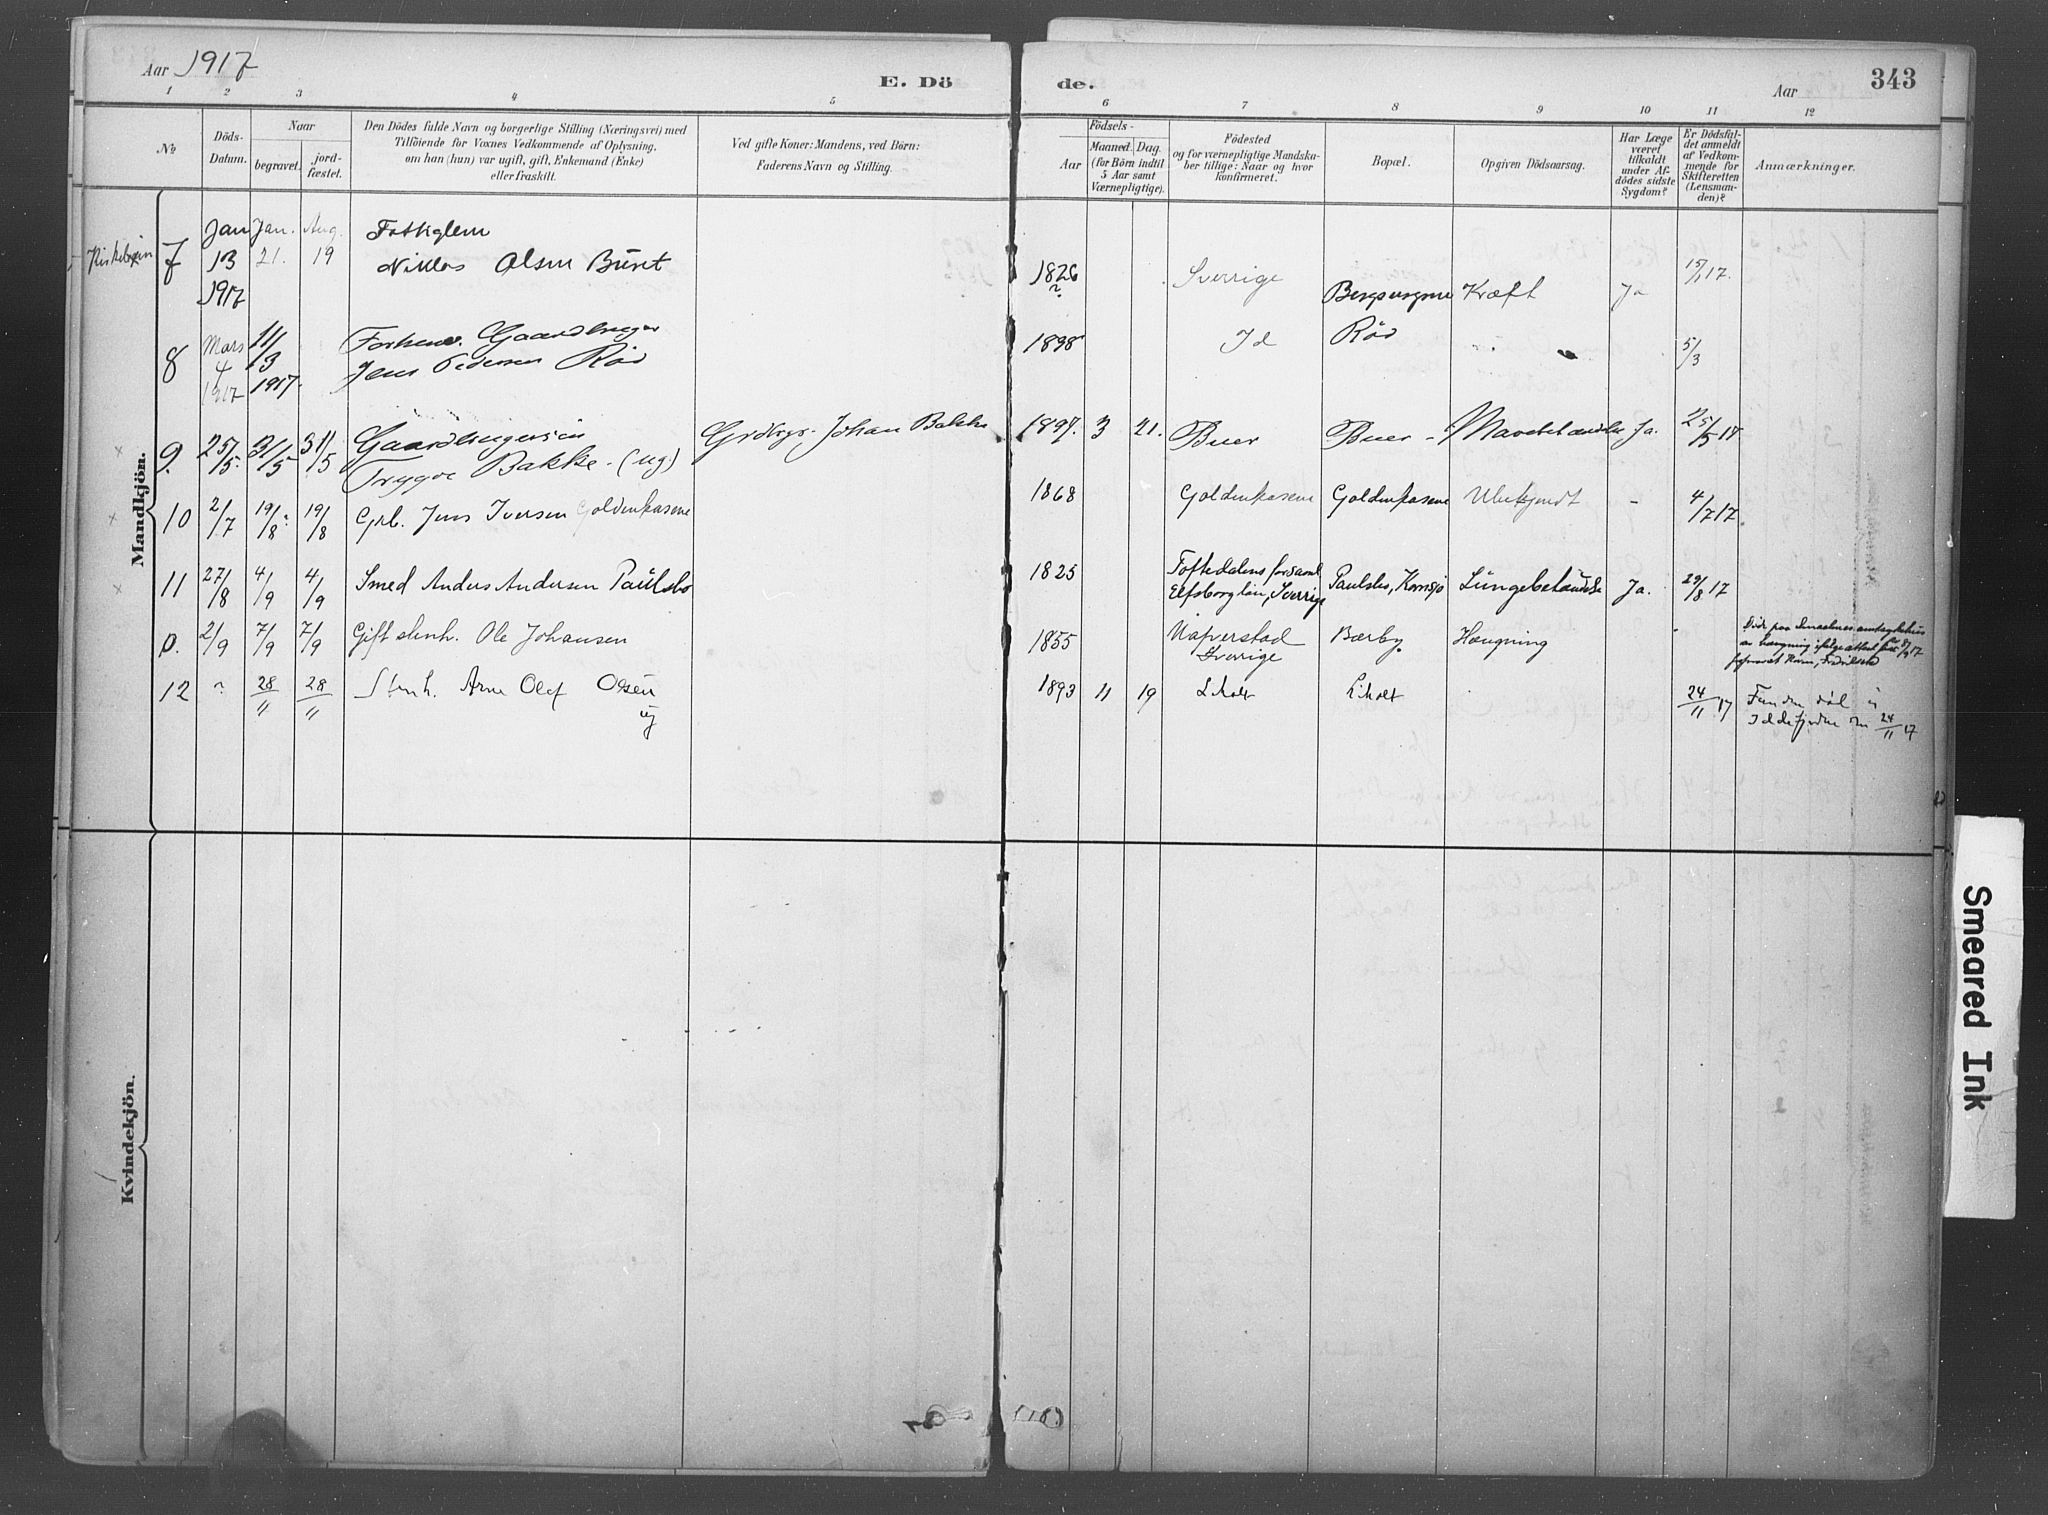 Aar 1917
E. Dö
de.
Aar
343
1 2 3 4 5 6 7 8 9 10 11 12
No
Döds-
Datum.
Naar
begravet.
jord-
fæstet.
Den Dödes fulde Navn og borgerlige Stilling (Næringsvei) med
Tilföiende for Voxnes Vedkommende af Oplysning,
om han (hun) var ugift, gift, Enkemand (Enke)
eller fraskilt.
Ved gifte Koner: Mandens, ved Börn:
Faderens Navn og Stilling.
Födsels-
Aar
Maaned. Dag.
(for Börn indtil
5 Aar samt
Værnepligtige).
Födested
og for værnepligtige Mandska-
ber tillige: Naar og hvor
konfirmeret.
Bopæl.
Opgiven Dödsaarsag.
Har Læge
været
tilkaldt
under Af-
dödes sidste
Sygdom?
Er Dödsfal-
det anmeldt
af Vedkom-
mende for
Skifteretten
(Lensman-
den)?
Anmærkninger.
Mandkjön.
7 Jan 13 1917 Jan. 21. Aug. 19
Niklas Olsen Buret 1826 ? Sverrige Kræft Ja 15/1 17.
8 Mars 4 1917 11/3 1917.
Gaardbruger
Jens Pedersen Röd 1898 Id Röd 5/3
9. 25/5. 31/5 31/5
Tryggve Bakke - (ug.) Grdbrgr. Johan Bakke 1897. 3 21. Buer Buer Ja. 25/5 17
10 2/7 19/8 19/8 Grb. Jens Iversen Goldenkasene 1868 Goldenkasene Goldenkasene Ubekjendt - 4/7 17
11 27/8 4/9 4/9 Smed Anders Andersen Paulsbo 1825 Toftedalens forsaml.
Elfsborg län, Sverrige Paulsbo, Kornsjö Lungebetændelse Ja. 29/8 17
D. 2/9 7/9 7/9 Gift stenh. Ole Johansen 1855 Naverstad
Sverrige Bærby. Hængning
12 ? 28/11 28/11 Stenh. Arne Olaf Olsen
ug 1893 11 19 Liholt Liholt 24/11 17 Funden död i
Iddefjorden den 24/11 17
Kvindekjön.
Smeared Ink